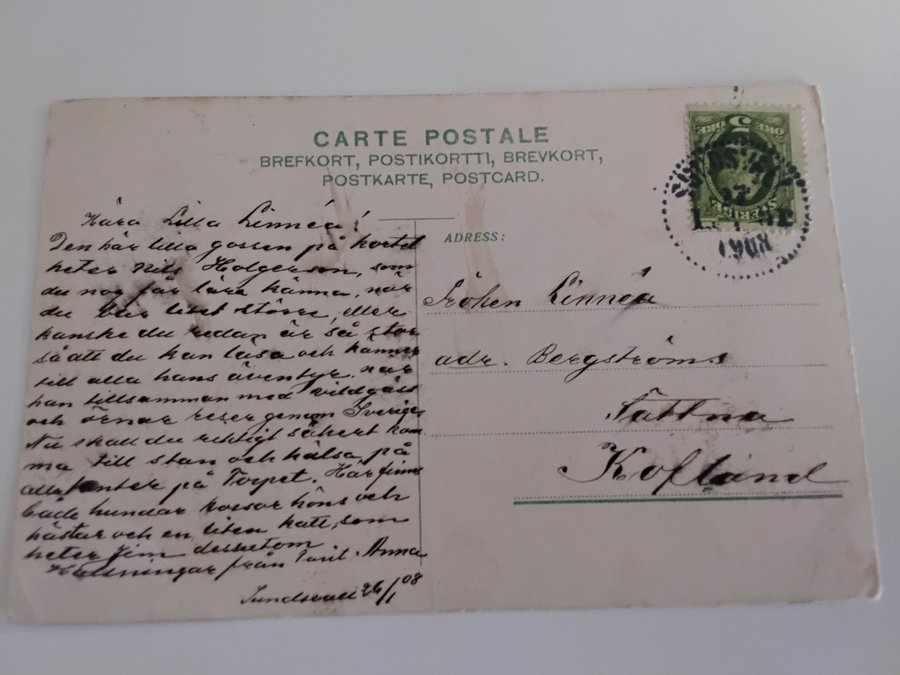 CARTE POSTALE
BREFKORT, POSTIKORTTI, BREVKORT,
POSTKARTE, POSTCARD.
5
ÖRE
ÖRE
SVERIGE
1908
Kära Lilla Linnéa!
Den här lilla gossen på kortet
heter Nils Holgerson, som
du nog får lära känna, när
du blir litet större, eller
kanske du redan är så stor
så att du kan läsa och känner
till alla hans äventyr, när
han tillsamman med vildgäss
och örnar reser genom Sverige
Nu skall du riktigt säkert kom
ma till stan och hälsa på
alla tanter på Torpet. Här finns
både hundar kossor höns och
hästar och en liten katt, som
heter Jim dessutom
Hälsningar från Anna
Sundsvall 26/1 08
ADRESS:
Fröken Linnéa
adr. Bergströms
Tuttna